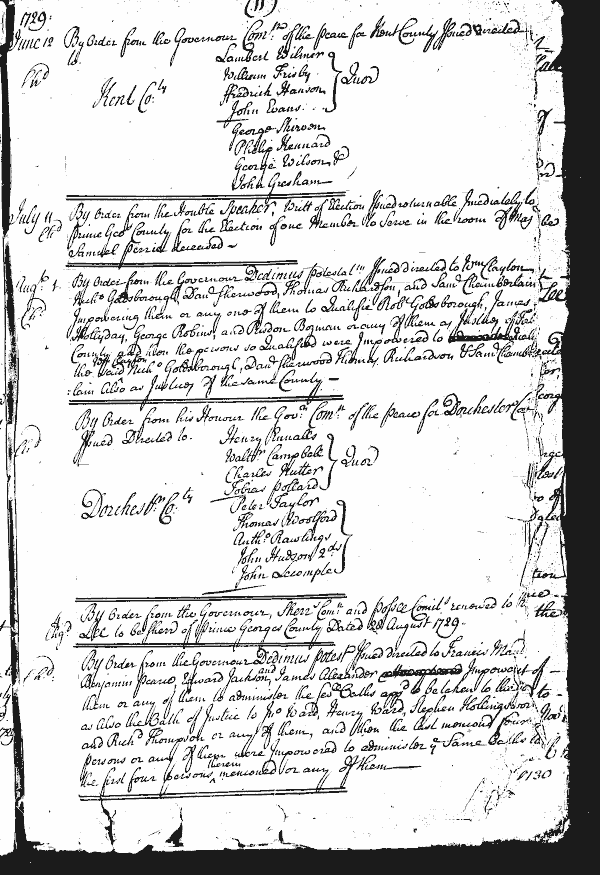 (11)
1729.
June 12 By Order from the Governour Comn. of the peace for Kent County Issued directed
to.
Chd
Kent Coty
Lambert Wilmer
William Frisby
ffredrick Hanson
John Evans
Quor
George Skirven
Philip Kennard
George Wilson &
John Gresham
July 11 By Order from the Honble Speaker, Writt of Election Issued returnable Imediately to
Chd Prince Geos. County for the Election of one Member to Serve in the room of
Samuel Perrie deceased
Augst 1. By Order from the Governour Dedimus potestatm Issued directed to Wm Clayton
Nichs Goldsborough, Danl Sherwood, Thomas Richardson, and Saml Chamberlain
Chd Impowering them or any one of them to Qualifie Robt Goldsborough, James
Hollyday, George Robins, and Risdon Bozman or any of them as Justices of
County and then the persons so Qualified were Impowered to
Wm Clayton
the said Nichs Goldsborough, Danl Sherwood Thomas Richardson & Saml Chamber
:lain also as Justices of the same County
By Order from his Honour the Govr. Comn. of the peace for Dorchester Co
Chd Issued Directed to.
Dorchestr Coty
Henry Ennalls
Waltr Campbell
Charles Nutter
Tobias Pollard
Quor
Peter Taylor
Thomas Woolford
Anthy Rawlings
John Hudson 2d
John Lecompte
Chgd By Order from the Governour, Sherrs Comn and posse Comits renewed to
Lee to be Sherif of Prince Georges County Dated 28 August 1729.
By Order from the Governour Dedimus potest Issued directed to Francis
Chd. Benjamin Pearce, Edward Jackson, and James Alexander Impowering
them or any of them to administer the sed. Oaths appd to be taken to
as Also the Oath of Justice to Jno Ward, Henry Ward, Stephen Hollingsworth
and Richd Thompson or any of them, and then the last mencond four
persons or any of them were Impowered to administer ye Same Oaths to
therein
the first four persons ^ mentioned or any of them